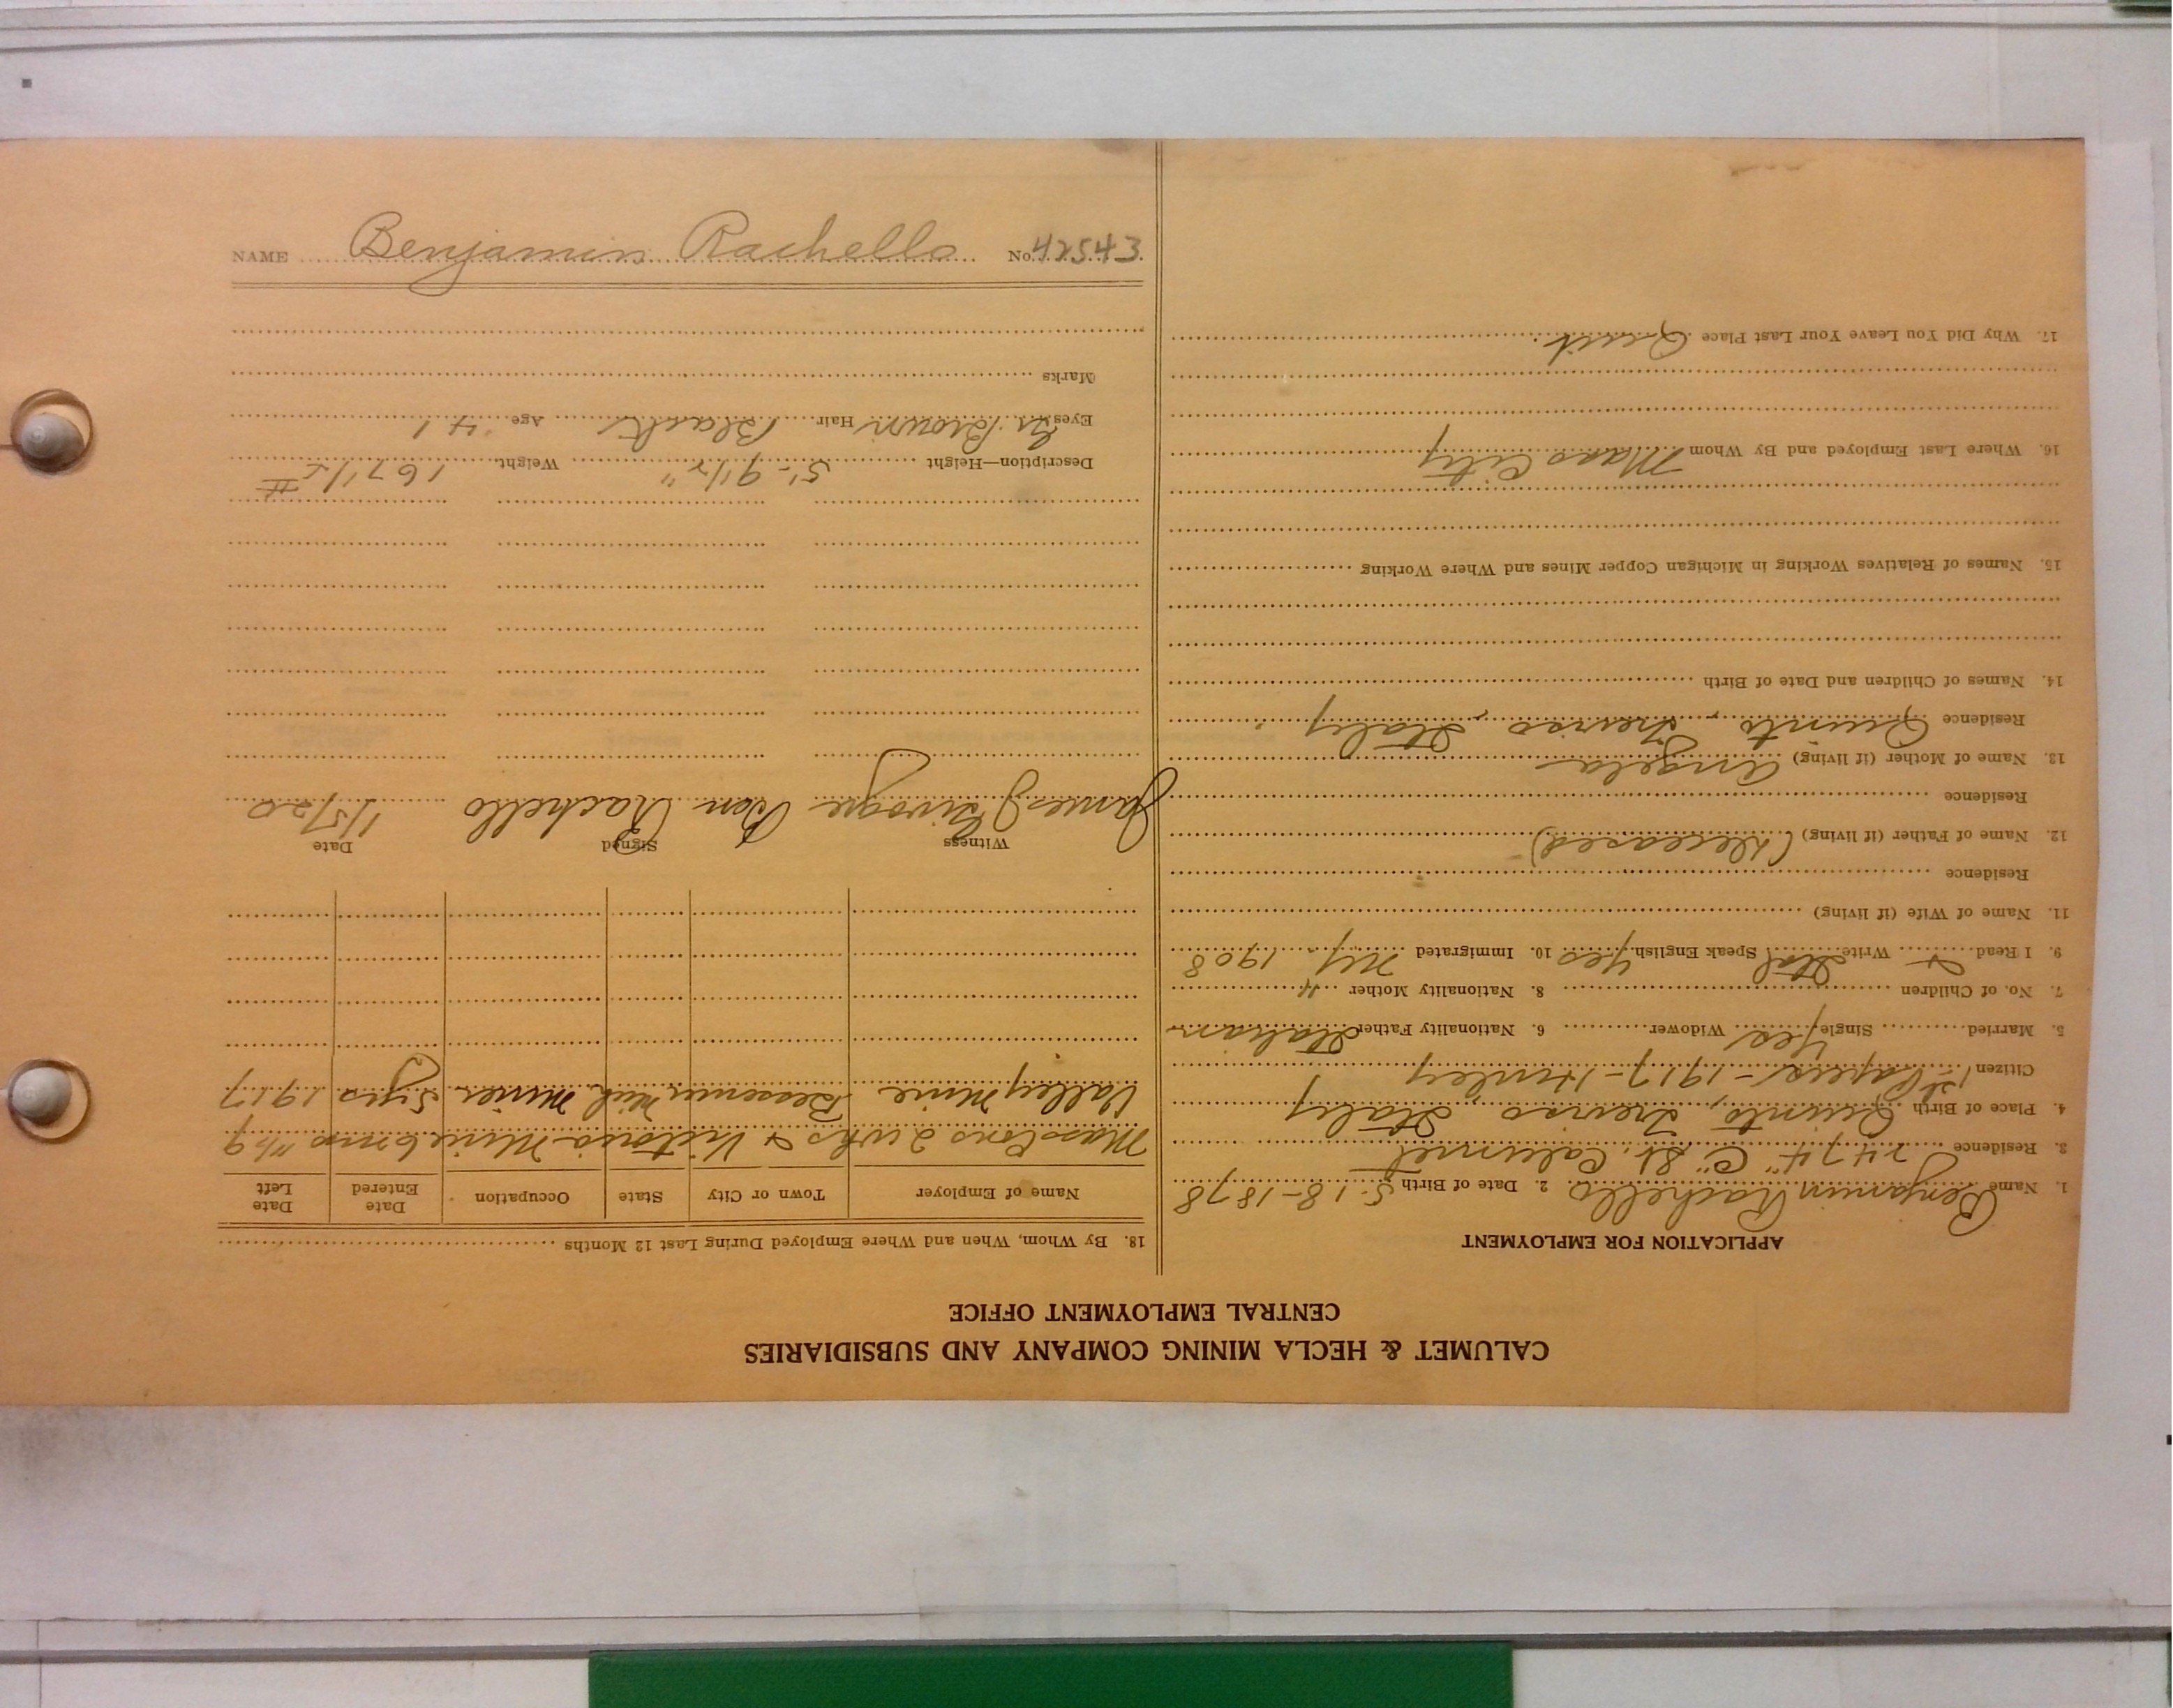 CALUMET & HECLA MINING COMPANY AND SUBSIDIARIES
CENTRAL EMPLOYMENT OFFICE
APPLICATION FOR EMPLOYMENT
1. Name Benjamin Rachello 2. Date of Birth 5-18-1878
3. Residence 2474 "C" St. Calumet
4. Place of Birth Quinto, Treviso, Italy
Citizen 1st Papers - 1917 - Hurley
5. Married Single Yes Widower 6. Nationality Father Italian
7. No. of Children 8. Nationality Mother "
9. I Read & Write Ital Speak English Yes 10. Immigrated NY. 1908
11. Name of Wife (if living)
Residence
12. Name of Father (if living) (Deceased)
Residence
13. Name of Mother (if living) Angela
Residence Quinto, Treviso, Italy
14. Names of Children and Date of Birth
15. Names of Relatives Working in Michigan Copper Mines and Where Working
16. Where Last Employed and By Whom Mass City
17. Why Did You Leave Your Last Place Quit.
18. By Whom, When and Where Employed During Last 12 Months
Name of Employer Town or City State Occupation Date Entered Date Left
Mass Cons 2 wks & Victoria Mine 6 mos
Valley Mine Bessemer Mich Miner 5 yrs 1917
Witness Signed Date
James Ben Rachello 1/5/20
Description—Height 5'-9 1/2" Weight 167 1/2 #
Eyes Brown Hair Black Age 41
Marks
NAME Benjamin Rachello No. 42543